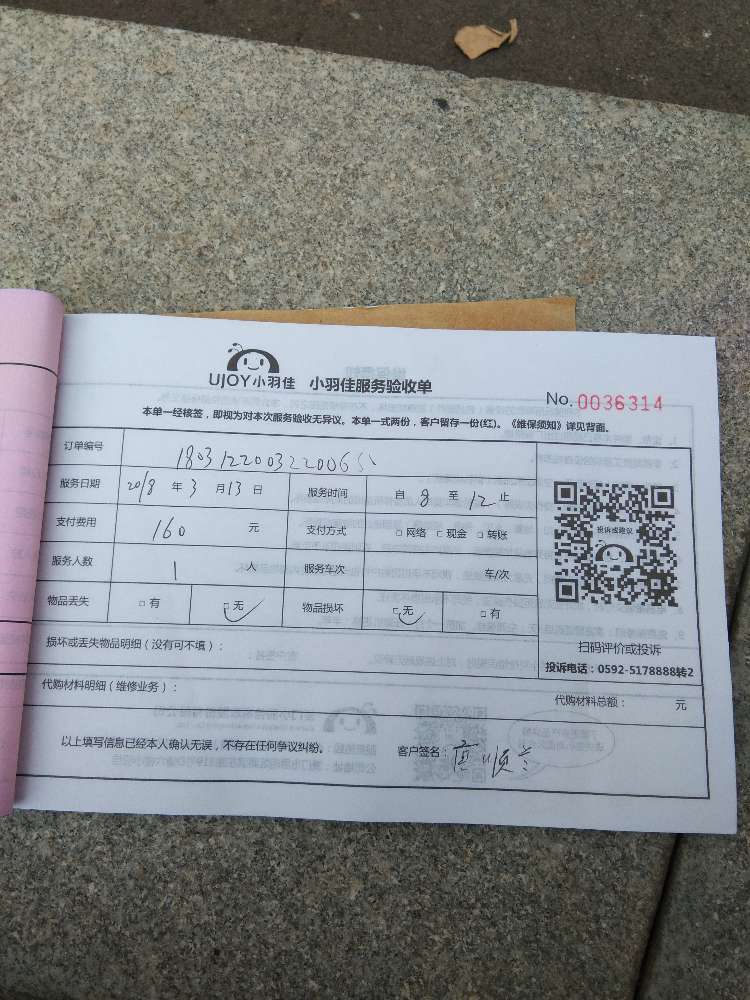 UJOY小羽佳 小羽佳服务验收单
No. 0036314
本单一经核签，即视为对本次服务验收无异议。本单一式两份，客户留存一份(红)。《维保须知》详见背面。
订单编号
服务日期 2018 年 3 月 13 日 服务时间 自 8 至 12 止
支付费用 160 元 支付方式 □ 网络 □ 现金 □ 转账
服务人数 1 人 服务车次 车/次
物品丢失 □ 有 □ 无 物品损坏 □ 无 □ 有
投诉或建议
扫码评价或投诉
投诉电话：0592-5178888转2
损坏或丢失物品明细（没有可不填）：
代购材料明细（维修业务）： 代购材料总额： 元
以上填写信息已经本人确认无误，不存在任何争议纠纷。 客户签名：